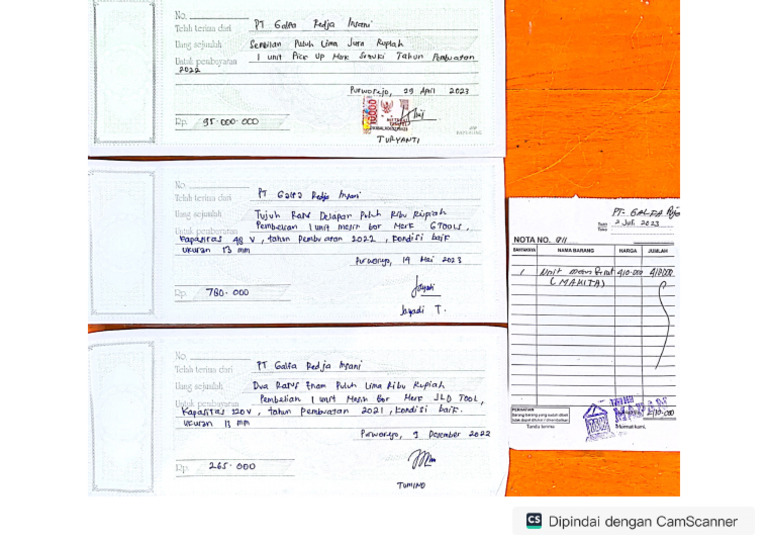 No.
Telah terima dari PT Galfa Redja Insani
Uang sejumlah Sembilan Puluh Lima Juta Rupiah
Untuk pembayaran 1 unit Pick Up Merk Suzuki Tahun Pembuatan
2022
Purworejo, 29 April 2023
Rp. 95.000.000
10000
TURYANTI
No.
Telah terima dari PT Galfa Redja Insani
Uang sejumlah Tujuh Ratus Delapan Puluh Ribu Rupiah
Untuk pembayaran Pembelian 1 unit mesin bor Merk GTOOLS,
Kapasitas 48 V, tahun Pembuatan 2022, Kondisi baik
ukuran 13 mm
Purworejo, 14 Mei 2023
Rp. 780.000
Jayadi T.
No.
Telah terima dari PT Galfa Redja Insani
Uang sejumlah Dua Ratus Enam Puluh Lima Ribu Rupiah
Untuk pembayaran Pembelian 1 unit Mesin Bor Merk JLD TOOL,
Kapasitas 120 V, tahun Pembuatan 2021, Kondisi baik.
ukuran 13 mm
Purworejo, 9 Desember 2022
Rp. 265.000
TUMINO
PT. GALFA
2 Juli 2023
Tuan
Toko
NOTA NO. 911
BANYAKNYA NAMA BARANG HARGA JUMLAH
1 Unit 410.000 410.000
(MAKITA)
PERHATIAN
Tanda terima
Hormat kami,
CS Dipindai dengan CamScanner